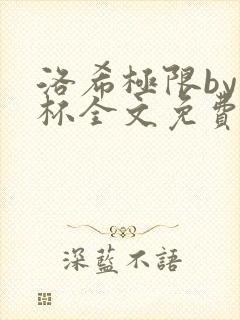 洛希極限by
杯全文免費
深藍不語